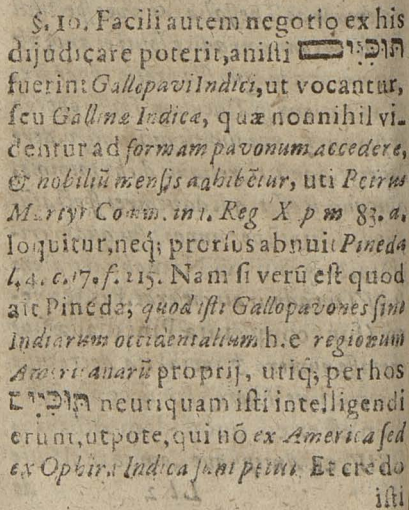 §. 10. Facili autem negotio ex his
dijudicare poterit, an isti תוכיים
fuerint Gallopavi Indici, ut vocantur,
seu Gallinæ Indicæ, quæ nonnihil vi-
dentur ad formam pavonum accedere,
& nobiliũ mensjs adhibẽtur, uti Petrus
Martyr Comm. in 1. Reg X p m 83. a.
loquitur, neq; prorsus abnuit Pineda
l. 4. c. 17. f. 215. Nam si verũ est quod
ait Pineda, quod isti Gallopavones sint
Indiarum occidentalium h. e regionum
Americanarũ proprij, utiq; per hos
תוכיים neutiquam isti intelligendi
erunt, utpote, qui nõ ex America sed
ex Ophira Indica sunt petiti. Et credo
isti